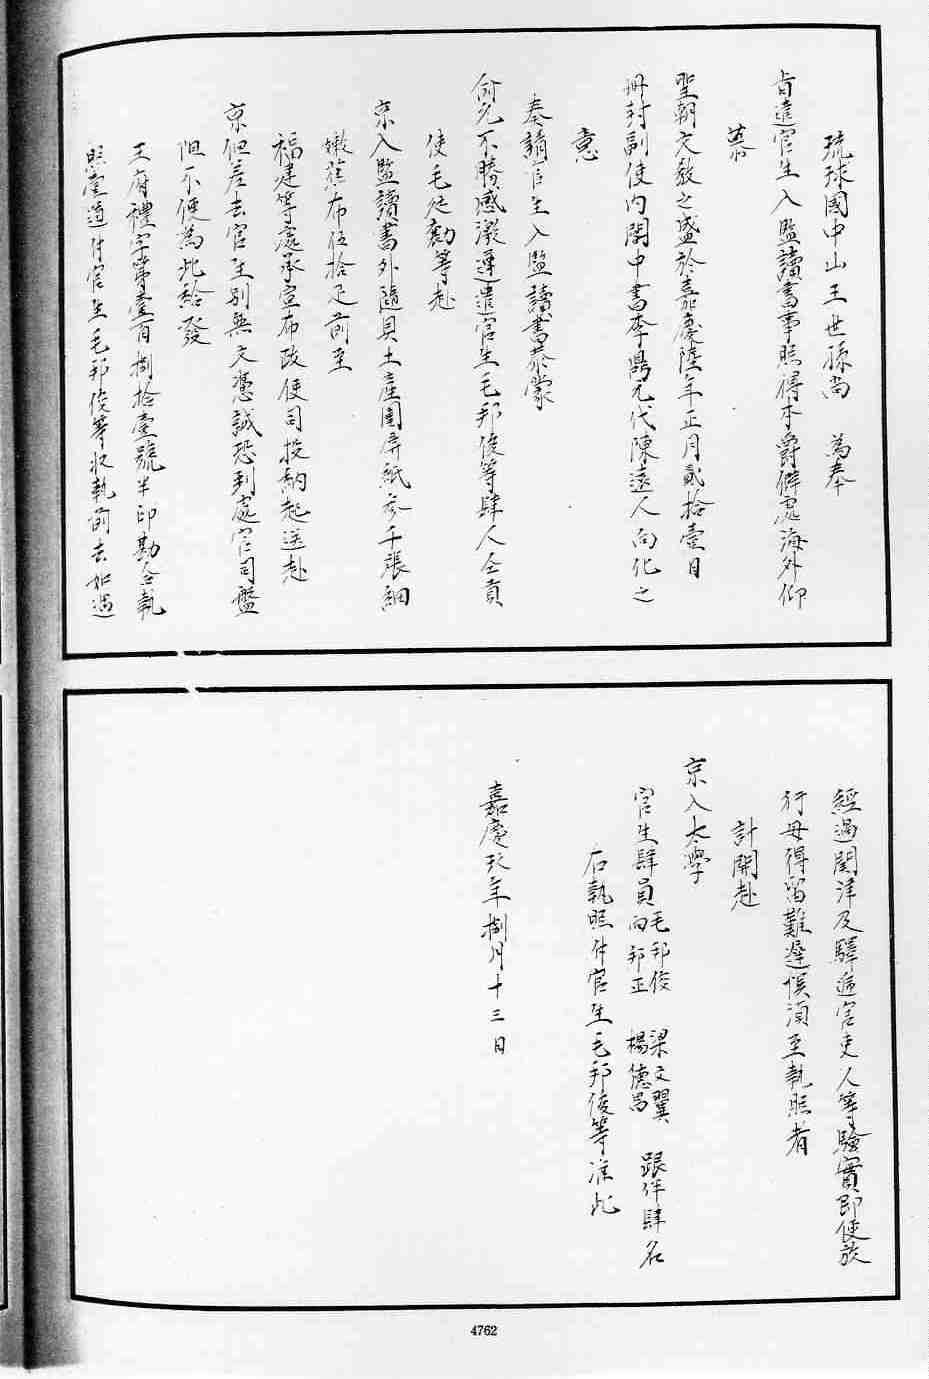 琉球國中山王世孫尚　為奉
旨遣官生入監讀書事照得本爵僻處海外仰
慕
聖朝文教之盛於嘉慶陸年正月貳拾壹日
冊封副使內閣中書李鼎元代陳遠人向化之
意
奏請官生入監讀書恭蒙
俞允不勝感激遵遣官生毛邦俊等肆人仝貢
使毛廷勷等赴
京入監讀書外隨具土產圍屏紙參千張細
嫩蕉布伍拾疋前至
福建等處承宣布政使司投納起送赴
京但差去官生別無文憑誠恐到處官司盤
阻不便為此給發
王府禮字第壹百捌拾壹號半印勘合執
照壹道付官生毛邦俊等收執前去如遇
經過關津及驛遞官吏人等驗實即便放
行毋得留難遲悮須至執照者
計開赴
京入太學
官生肆員毛邦俊　梁文翼　跟伴肆名
向邦正　楊德昌
右執照付官生毛邦俊等准此
嘉慶玖年捌月十三日
4762